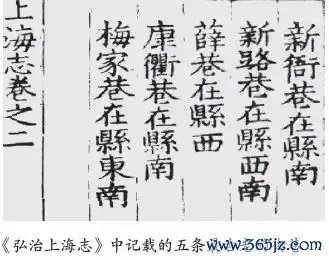 新衙巷在縣南
新路巷在縣西南
薛巷在縣西
康衢巷在縣南
梅家巷在縣東南
上海志卷之二
《弘治上海志》中记载的五条
www.365jz.com